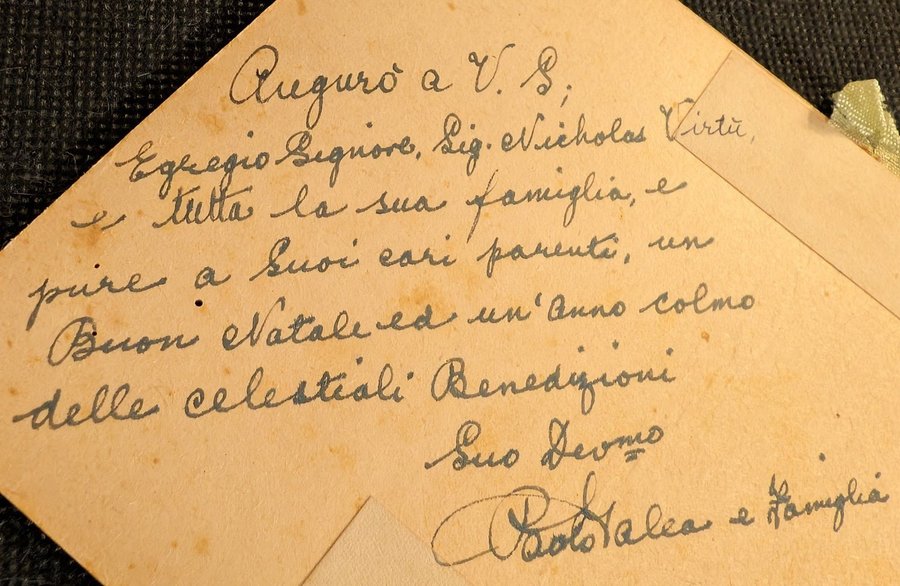 Augurò a V. S;
Egregio Signore, Sig. Nicholas Virtù,
e tutta la sua famiglia, e
pure a Suoi cari parenti, un
Buon Natale ed un'anno colmo
delle celestiali Benedizioni
Suo Devmo
Paolo e Famiglia